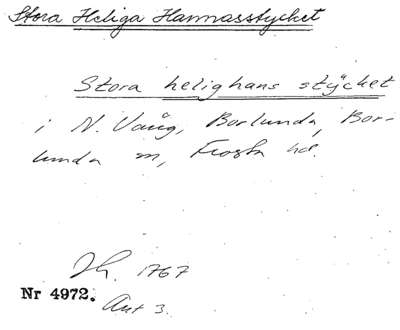 Stora Heliga Hannasstycket
Stora helighans stÿcket
i N. Vång, Borlunda, Bor-
lunda sn, Frosta hd.
Jb. 1767
Nr 4972.
Avt 3.